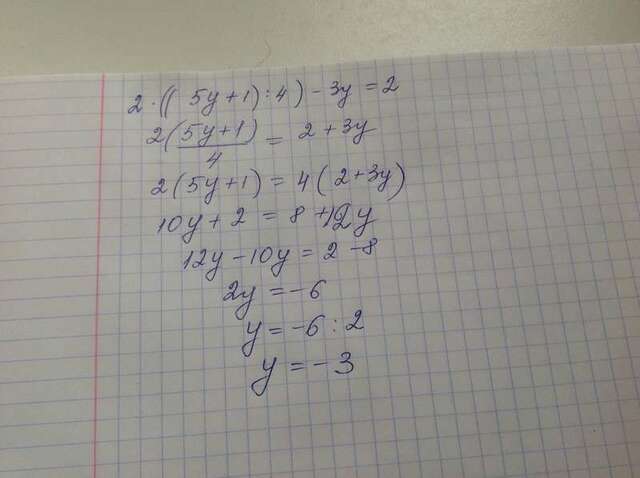 2 · (( 5y + 1) : 4) - 3y = 2
2(5y+1)/4 = 2 + 3y
2(5y+1) = 4(2+3y)
10y + 2 = 8 + 12y
12y - 10y = 2 - 8
2y = -6
y = -6 : 2
y = -3